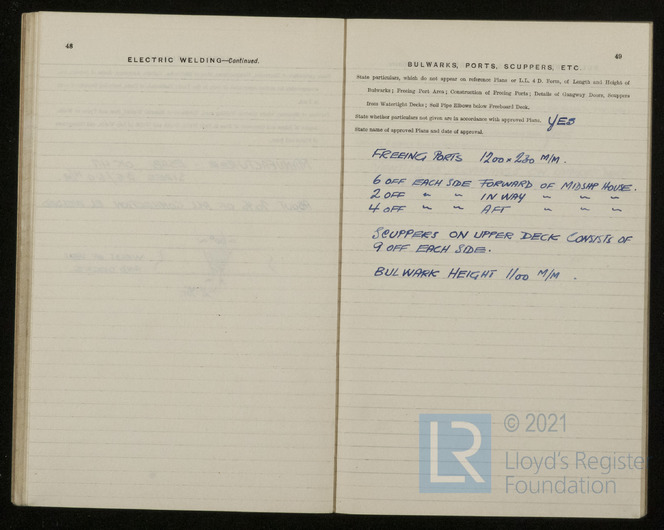 48
ELECTRIC WELDING—Continued.
49
BULWARKS, PORTS, SCUPPERS, ETC.
State particulars, which do not appear on reference Plans or L.L. 4 D. Form, of Length and Height of
Bulwarks; Freeing Port Area; Construction of Freeing Ports; Details of Gangway Doors, Scuppers
from Watertight Decks; Soil Pipe Elbows below Freeboard Deck.
State whether particulars not given are in accordance with approval Plans. YES
State name of approval Plans and date of approval.
FREEING PORTS 1200 x 230 M/M.
6 OFF EACH SIDE FORWARD OF MIDSHIP HOUSE.
2 OFF " " IN WAY " " "
4 OFF " " AFT " " "
SCUPPERS ON UPPER DECK CONSISTS OF
9 OFF EACH SIDE.
BULWARK HEIGHT 1100 M/M.
LR
© 2021
Lloyd's Register
Foundation